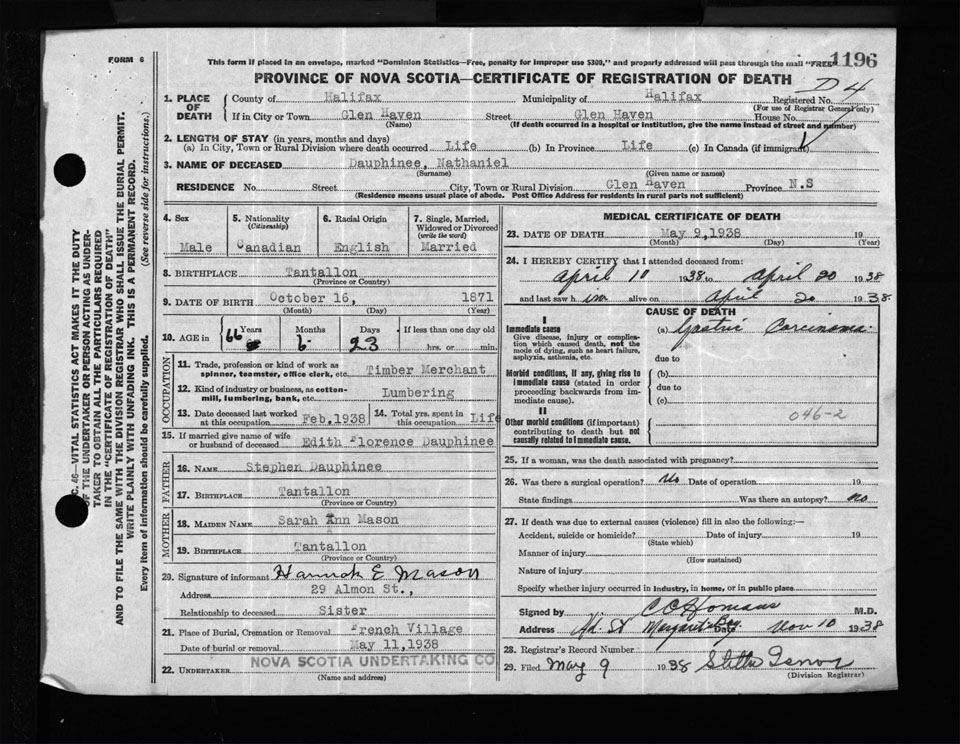 FORM 6
This form if placed in an envelope, marked "Dominion Statistics—Free, penalty for improper use $300," and properly addressed will pass through the mail "FREE"
1196
PROVINCE OF NOVA SCOTIA—CERTIFICATE OF REGISTRATION OF DEATH
D 4
1. PLACE OF DEATH
County of Halifax Municipality of Halifax Registered No.
(For use of Registrar General only)
If in City or Town Glen Haven Street Glen Haven House No.
(Name) (If death occurred in a hospital or institution, give the name instead of street and number)
2. LENGTH OF STAY (in years, months and days)
(a) In City, Town or Rural Division where death occurred Life (b) In Province Life (c) In Canada (if immigrant)
3. NAME OF DECEASED Dauphinee, Nathaniel
(Surname) (Given name or names)
RESIDENCE No. Street City, Town or Rural Division Glen Haven Province N.S
(Residence means usual place of abode. Post Office Address for residents in rural parts not sufficient)
4. Sex Male
5. Nationality (Citizenship) Canadian
6. Racial Origin English
7. Single, Married, Widowed or Divorced (write the word) Married
8. BIRTHPLACE Tantallon
(Province or Country)
9. DATE OF BIRTH October 16, 1871
(Month) (Day) (Year)
10. AGE in Years Months Days If less than one day old
66 6 23 hrs. or min.
OCCUPATION
11. Trade, profession or kind of work as spinner, teamster, office clerk, etc. Timber Merchant
12. Kind of industry or business, as cotton-mill, lumbering, bank, etc. Lumbering
13. Date deceased last worked at this occupation Feb,1938
14. Total yrs. spent in this occupation Life
15. If married give name of wife or husband of deceased Edith Florence Dauphinee
FATHER
16. NAME Stephen Dauphinee
17. BIRTHPLACE Tantallon
(Province or Country)
MOTHER
18. MAIDEN NAME Sarah Ann Mason
19. BIRTHPLACE Tantallon
(Province or Country)
20. Signature of informant Hannah E Mason
Address 29 Almon St.,
Relationship to deceased Sister
21. Place of Burial, Cremation or Removal French Village
Date of burial or removal May 11,1938
22. UNDERTAKER NOVA SCOTIA UNDERTAKING CO
(Name and address)
MEDICAL CERTIFICATE OF DEATH
23. DATE OF DEATH May 9,1938 19
(Month) (Day) (Year)
24. I HEREBY CERTIFY that I attended deceased from:
April 10 1938 to April 20 1938
and last saw him alive on April 20 1938.
CAUSE OF DEATH
I
Immediate cause
Give disease, injury or complication which caused death, not the mode of dying, such as heart failure, asphyxia, asthenia, etc.
(a) Gastric Carcinoma.
due to
Morbid conditions, if any, giving rise to immediate cause (stated in order proceeding backwards from immediate cause).
(b)
due to
(c)
II
Other morbid conditions (if important) contributing to death but not causally related to immediate cause.
046-2
25. If a woman, was the death associated with pregnancy?
26. Was there a surgical operation? No Date of operation 19
State findings Was there an autopsy? no
27. If death was due to external causes (violence) fill in also the following:—
Accident, suicide or homicide? Date of injury 19
(State which)
Manner of injury
(How sustained)
Nature of injury
Specify whether injury occurred in industry, in home, or in public place
Signed by M.D.
Address Hd. St Margarets Bay Date Nov 10 1938
28. Registrar's Record Number
29. Filed May 9 1938
(Division Registrar)
C. 46—VITAL STATISTICS ACT MAKES IT THE DUTY
OF THE UNDERTAKER OR PERSON ACTING AS UNDER-
TAKER TO OBTAIN ALL THE PARTICULARS REQUIRED
IN THE "CERTIFICATE OF REGISTRATION OF DEATH"
AND TO FILE THE SAME WITH THE DIVISION REGISTRAR WHO SHALL ISSUE THE BURIAL PERMIT.
WRITE PLAINLY WITH UNFADING INK. THIS IS A PERMANENT RECORD.
Every item of information should be carefully supplied. (See reverse side for instructions.)